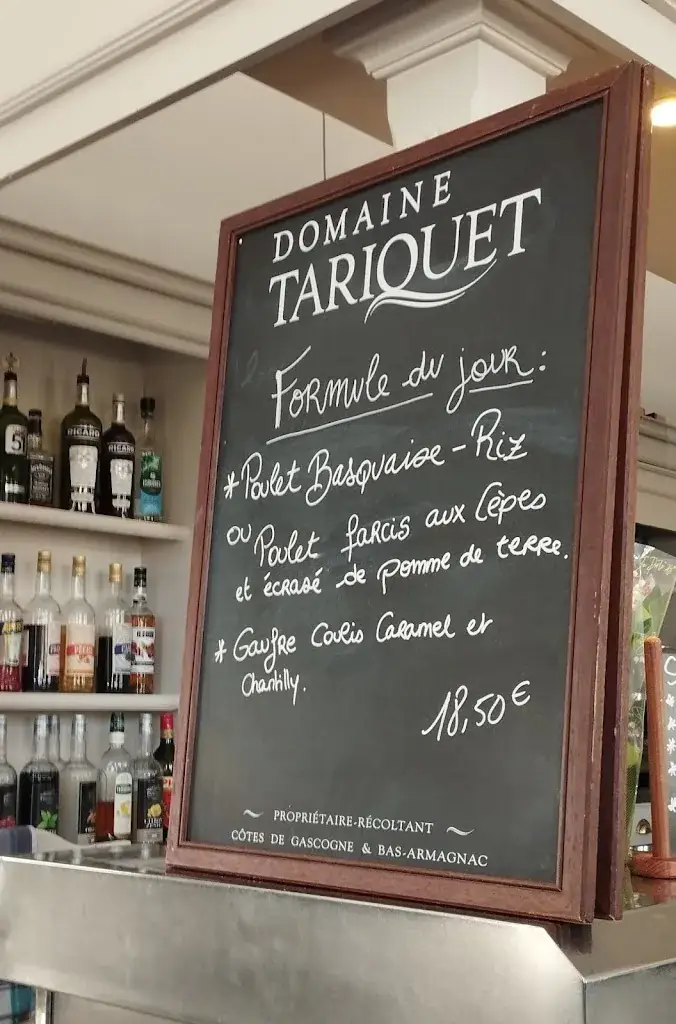 DOMAINE
TARIQUET
Formule du jour:
* Poulet Basquaise - Riz
ou Poulet farcis aux Cèpes
et écrasé de pomme de terre.
* Gaufre Coulis Caramel et
Chantilly.
18,50€
~ PROPRIÉTAIRE-RÉCOLTANT ~
CÔTES DE GASCOGNE & BAS-ARMAGNAC
5
RICARD
RICARD